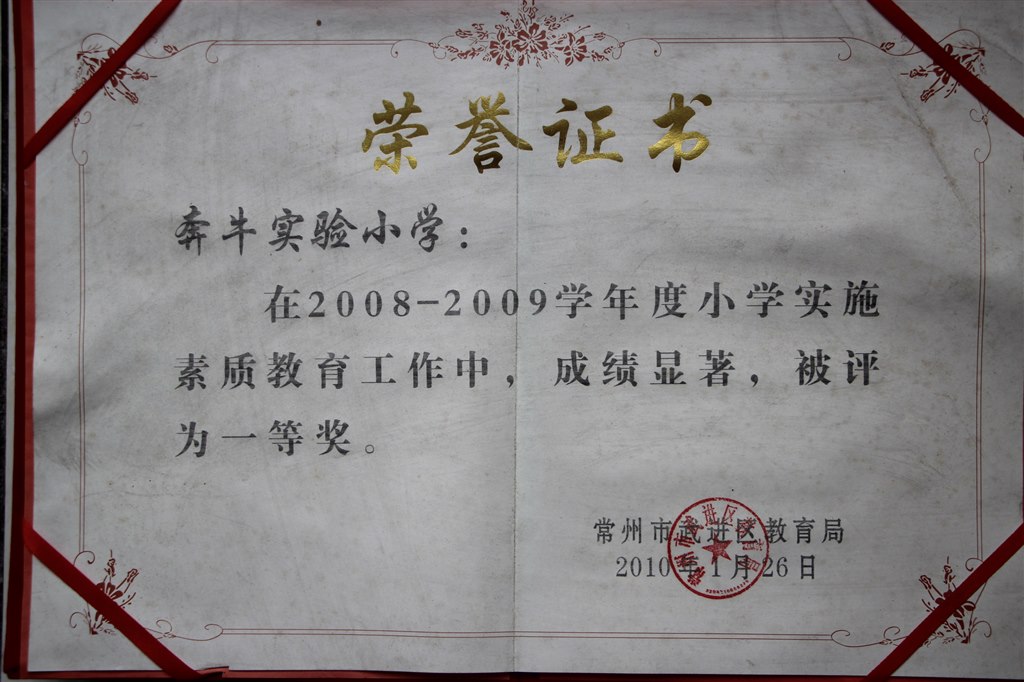 荣誉证书
奔牛实验小学：
在2008-2009学年度小学实施
素质教育工作中，成绩显著，被评
为一等奖。
常州市武进区教育局
2010年1月26日
常州市武进区教育局